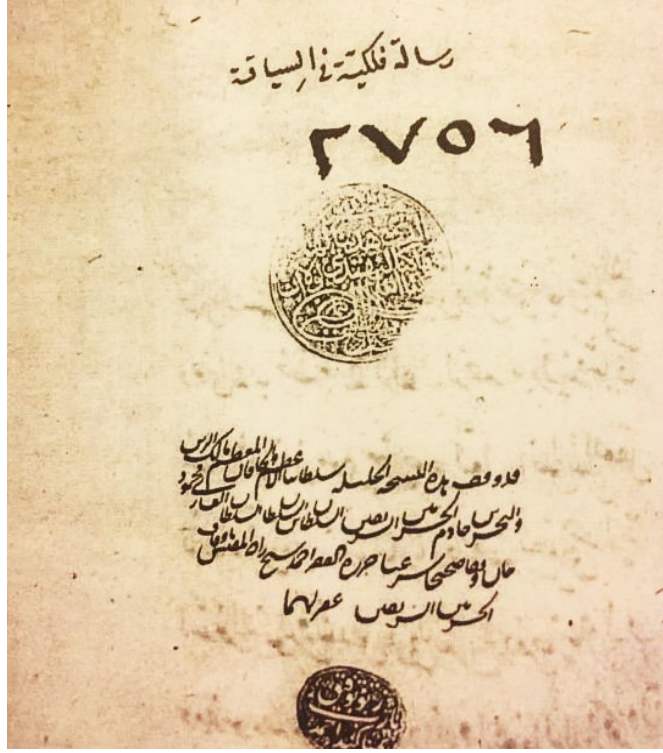 رسالة فلكية في السياقة
٢٧٥٦
قد وقف هذه النسخة الجليلة سلطاننا الأعظم والخاقان المعظم مالك البرين
والبحرين خادم الحرمين الشريفين السلطان بن السلطان السلطان الغازي محمود
خان وقفا صحيحا شرعيا حرره الفقير احمد شيخ زاده المفتش باوقاف
الحرمين الشريفين غفر لهما